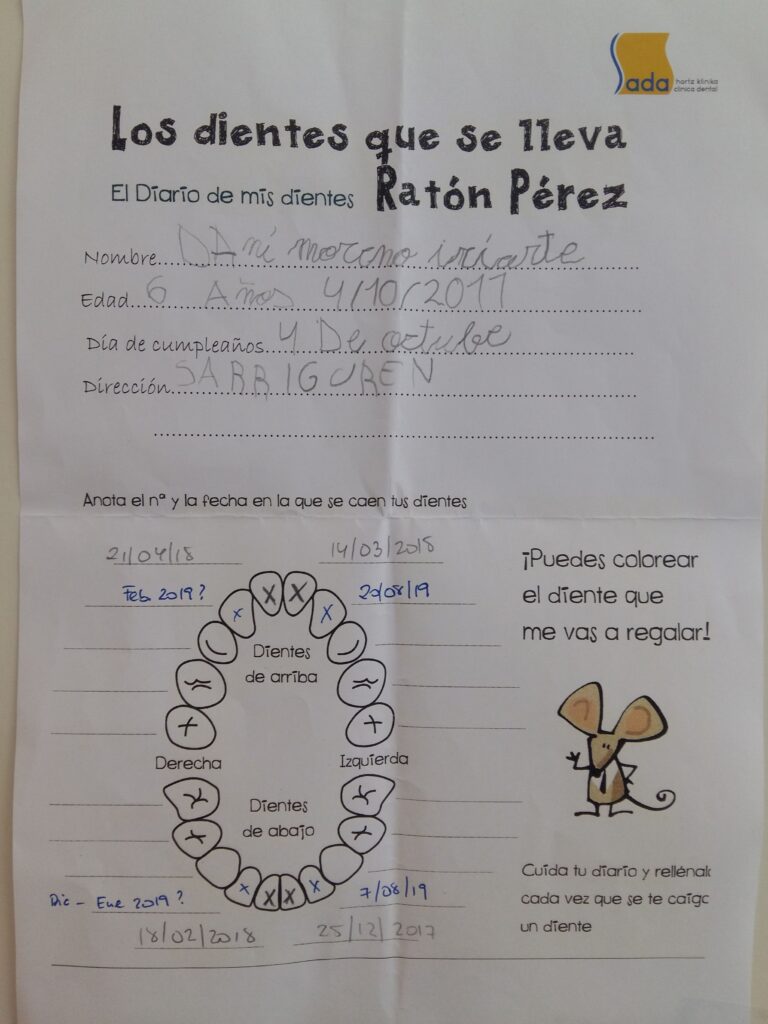 Sada hortz klinika
clínica dental
Los dientes que se lleva
El Diario de mis dientes Ratón Pérez
Nombre DANi moreno iriarte
Edad 6 Años 4/10/2011
Día de cumpleaños 4 De octubre
Dirección SARRIGUREN
Anota el nº y la fecha en la que se caen tus dientes
21/04/18 14/03/2018
Feb. 2019? 20/08/19
¡Puedes colorear
el diente que
me vas a regalar!
Dientes
de arriba
Derecha Izquierda
Dientes
de abajo
Dic - Ene 2019? 7/08/19
18/02/2018 25/12/2017
Cuida tu diario y rellénalo
cada vez que se te caiga
un diente